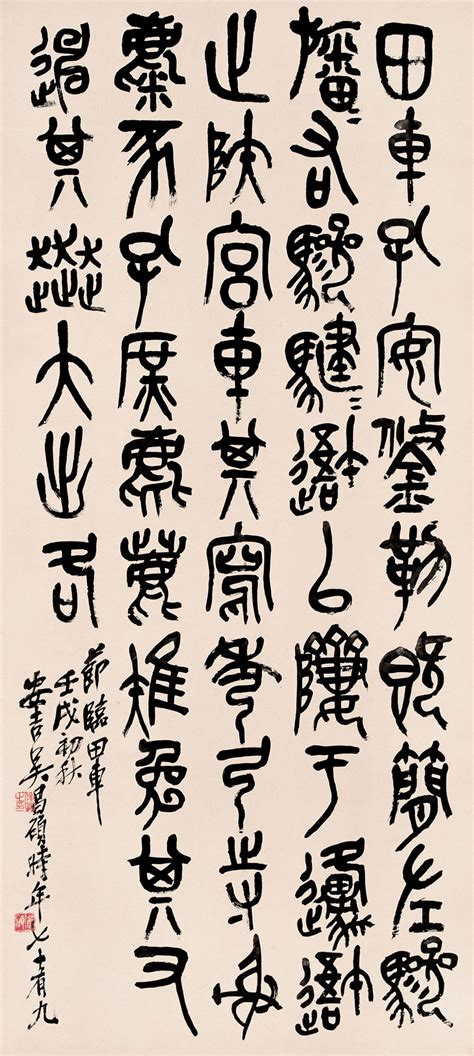 田車孔安鋚勒既簡左驂
旛〻右驂騝〻吾以隮于邍吾
止陜宮車其寫秀弓寺射
麋豕孔庶麀鹿雉兔其又
其奔大出各
節臨田車
壬戌初秋
安吉吳昌碩時年七十有九